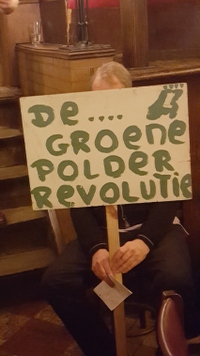 DE ....
GROENE
POLDER
REVOLUTIE